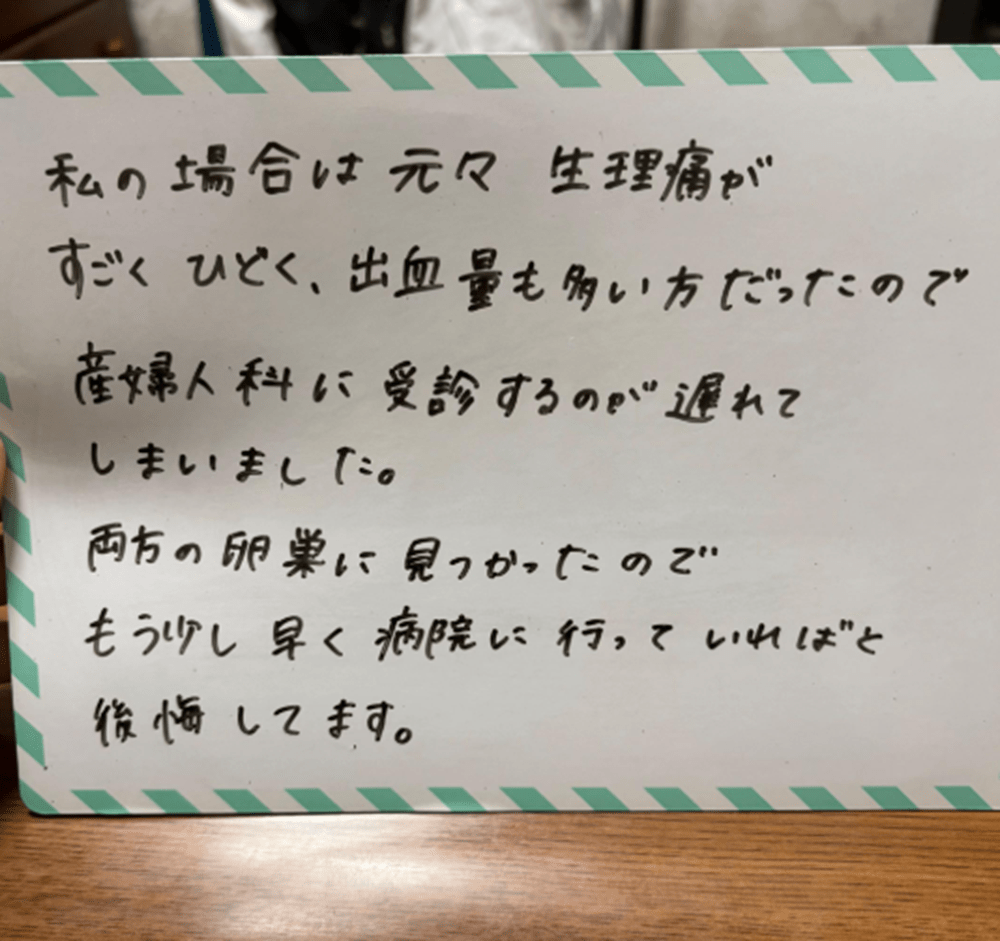 私の場合は元々 生理痛が
すごくひどく、出血量も多い方だったので
産婦人科に受診するのが遅れて
しまいました。
両方の卵巣に見つかったので
もう少し早く病院に行っていればと
後悔してます。